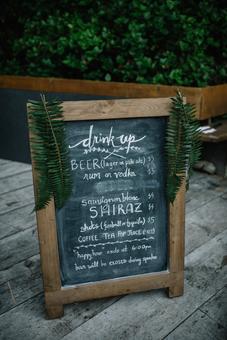 drink up
BEER (lager or pale ale) $3
rum or vodka $3
Sauvignon blanc $4
SHIRAZ $4
shots (fireball or tequila) $5
COFFEE TEA POP JUICE
happy hour ends at 6:00pm
bar will be closed during speeches